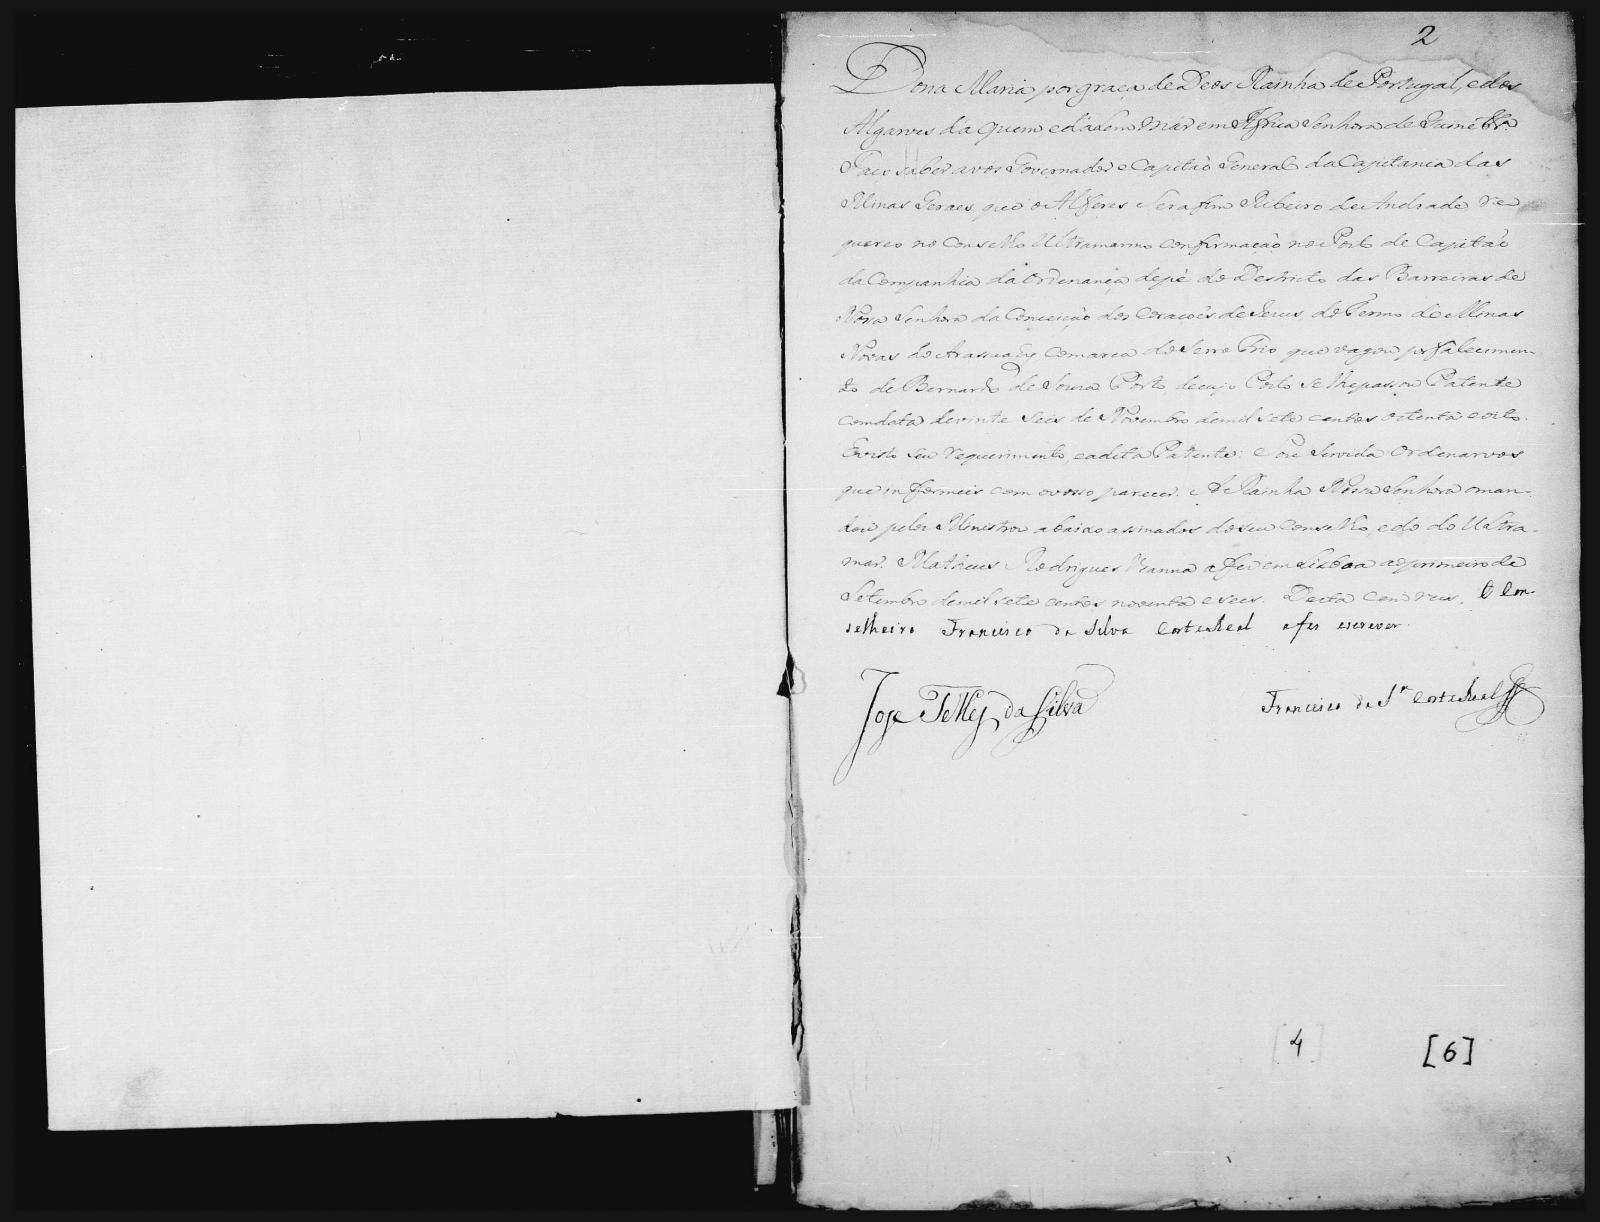 2
Dona Maria por graça de Deos Rainha de Portugal, e dos
Algarves d'a quem e d'alem Már em Africa Senhora de Guiné &ca.
Faço saber a vós Governador e Capitaõ General da Capitania das
Minas Geraes, que o Alferes Serafim Ribeiro de Andrade re
quereo no Conselho Ultramarino confirmaçaõ no Posto de Capitaõ
da Companhia da Ordenança de pé do Destricto das Barreiras de
Nossa Senhora da Conceiçaõ dos Coraçoẽs de Jesus, do Termo de Minas
Novas do Arassuahy Comarca do Serro Frio que vagou por falecimen-
to de Bernardo de Souza Porto, de cujo Posto se lhe passou Patente
com data de vinte seis de Novembro de mil sete centos oitenta e oito.
E visto seu requerimento, e a dita Patente: Sou Servida Ordenarvos
que informeis com o vosso parecer. A Rainha Nossa Senhora o man-
dou pelos Ministros abaixo assinados do seu Conselho, e do do Ultra-
mar. Matheus Rodrigues Vianna a fez em Lisboa ao primeiro de
Setembro de mil sete centos noventa e seis. Desta cem reis. O Con-
selheiro Francisco da Silva Corte Real a fez escrever.
Joze Telles da Silva
Francisco da Sª Corte Real
[4]
[6]